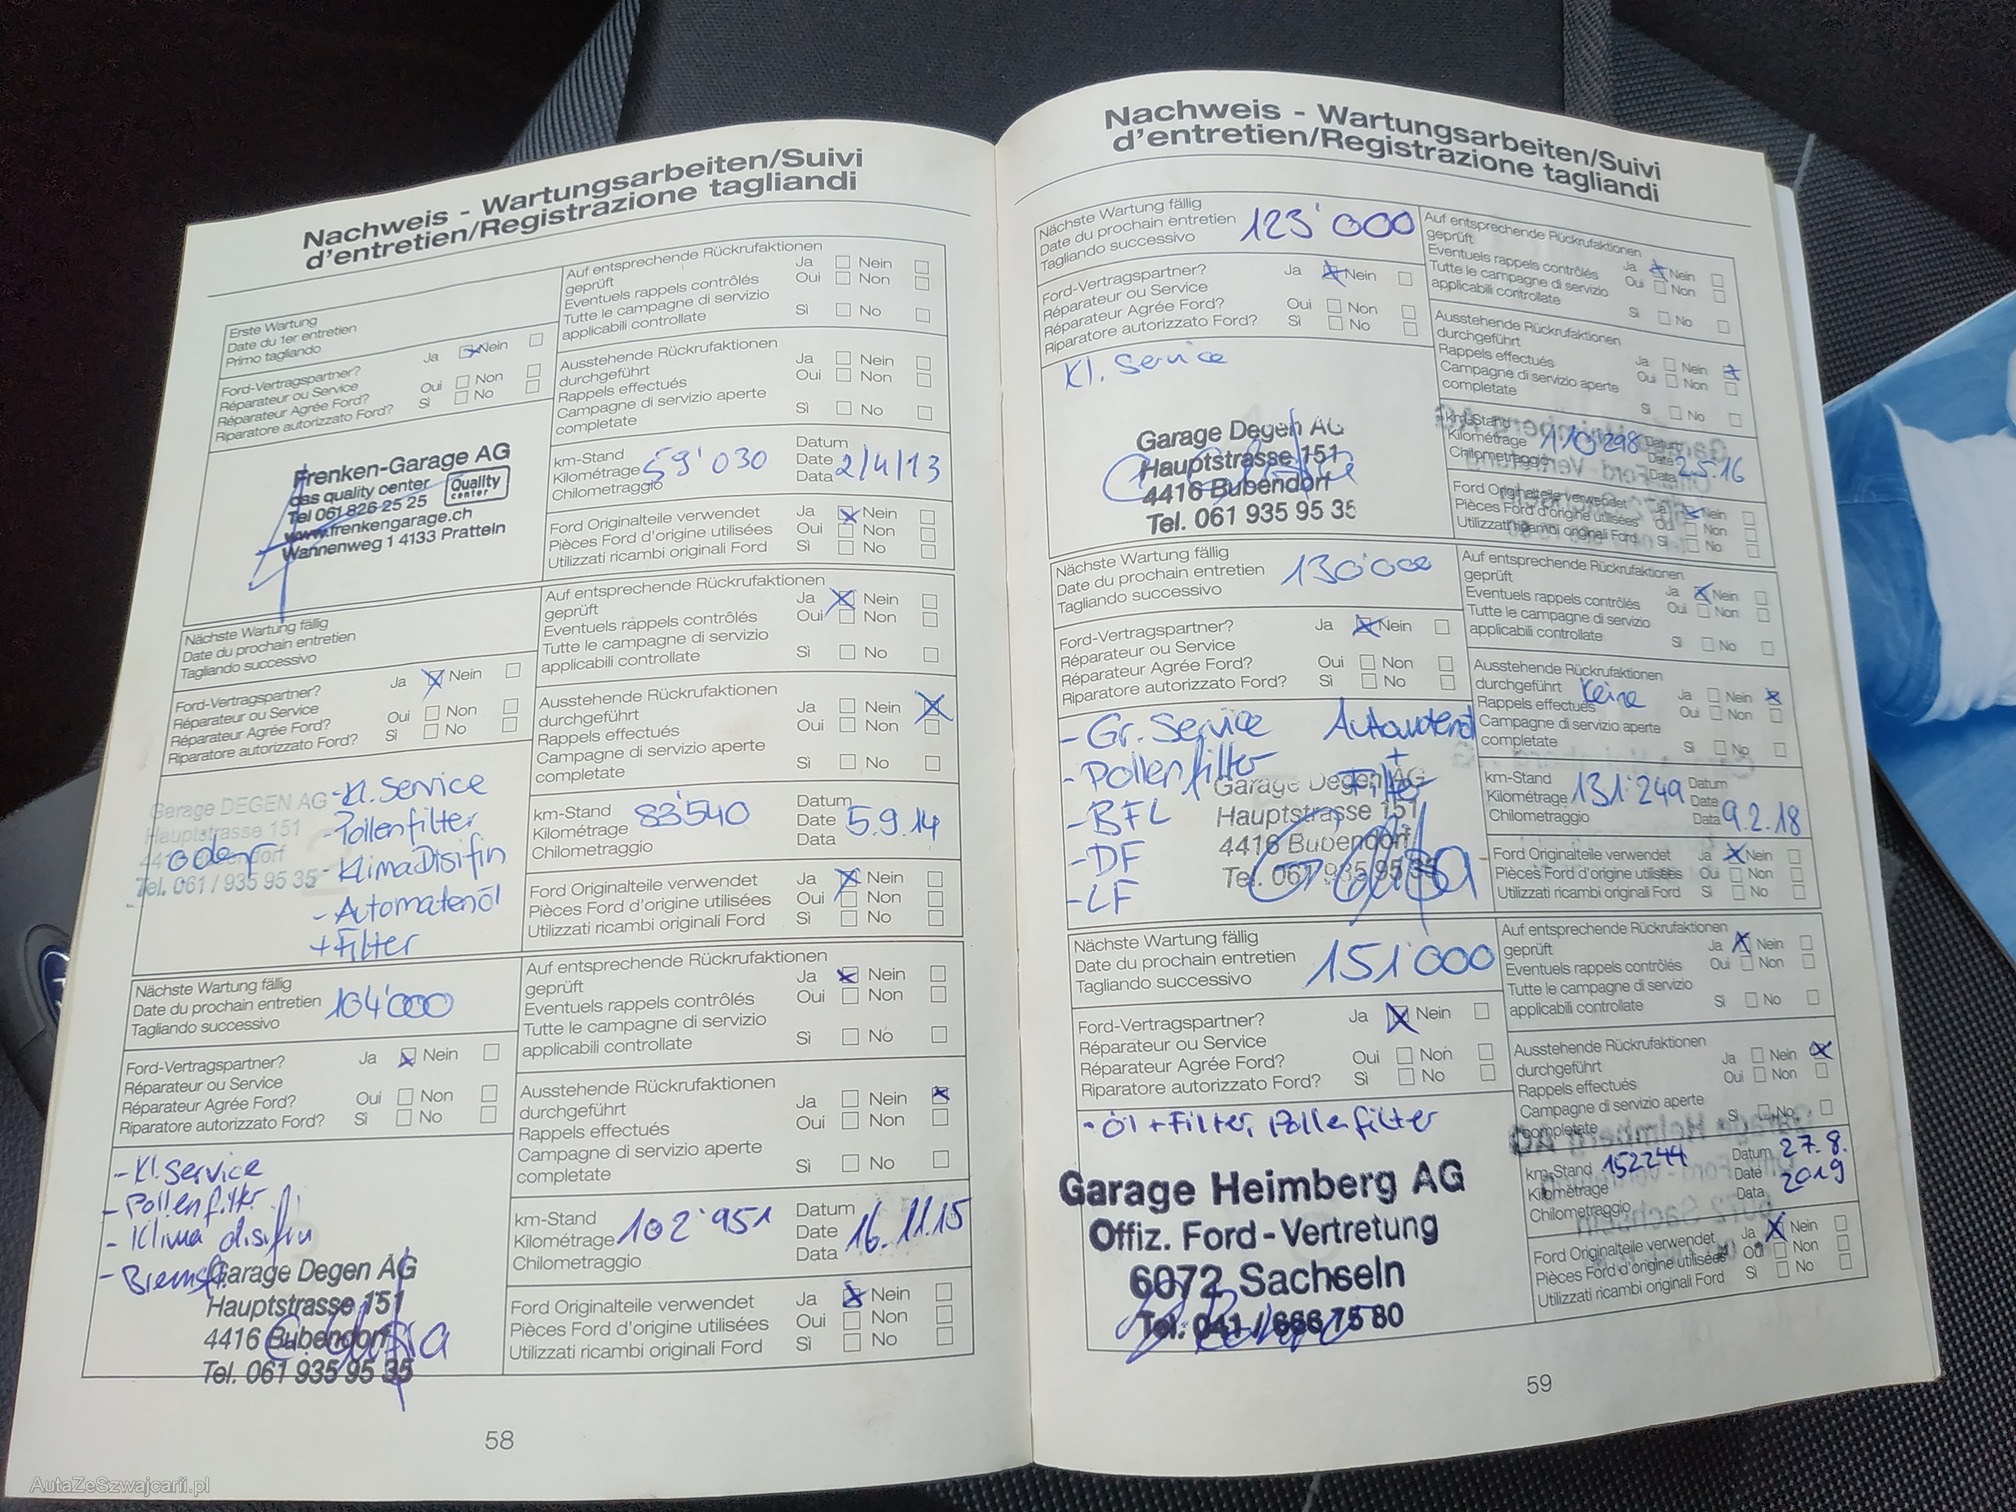 Nachweis - Wartungsarbeiten/Suivi
d'entretien/Registrazione tagliandi
Erste Wartung
Date du 1er entretien
Primo tagliando
Ford-Vertragspartner? Ja Nein
Réparateur ou Service
Réparateur Agrée Ford? Oui Non
Riparatore autorizzato Ford? Sì No
Frenken-Garage AG
das quality center
Quality center
Tel 061 826 25 25
www.frenkengarage.ch
Wannenweg 1 4133 Pratteln
Auf entsprechende Rückrufaktionen
geprüft Ja Nein
Eventuels rappels contrôlés Oui Non
Tutte le campagne di servizio
applicabili controllate Sì No
Ausstehende Rückrufaktionen
durchgeführt Ja Nein
Rappels effectués Oui Non
Campagne di servizio aperte
completate Sì No
km-Stand Datum
Kilométrage 59'030 Date 2/4/13
Chilometraggio Data
Ford Originalteile verwendet Ja Nein
Pièces Ford d'origine utilisées Oui Non
Utilizzati ricambi originali Ford Sì No
Nächste Wartung fällig
Date du prochain entretien
Tagliando successivo
Ford-Vertragspartner? Ja Nein
Réparateur ou Service
Réparateur Agrée Ford? Oui Non
Riparatore autorizzato Ford? Sì No
Garage DEGEN AG
Hauptstrasse 151
4416 Bubendorf
Tel. 061 / 935 95 35
- Kl. Service
- Pollenfilter
- Klima Disifin
- Automatenöl
+ Filter
Auf entsprechende Rückrufaktionen
geprüft Ja Nein
Eventuels rappels contrôlés Oui Non
Tutte le campagne di servizio
applicabili controllate Sì No
Ausstehende Rückrufaktionen
durchgeführt Ja Nein
Rappels effectués Oui Non
Campagne di servizio aperte
completate Sì No
km-Stand Datum
Kilométrage 83'540 Date 5.9.14
Chilometraggio Data
Ford Originalteile verwendet Ja Nein
Pièces Ford d'origine utilisées Oui Non
Utilizzati ricambi originali Ford Sì No
Nächste Wartung fällig
Date du prochain entretien 104'000
Tagliando successivo
Ford-Vertragspartner? Ja Nein
Réparateur ou Service
Réparateur Agrée Ford? Oui Non
Riparatore autorizzato Ford? Sì No
- Kl. Service
- Pollenfilter
- Klima disifin
Garage Degen AG
Hauptstrasse 151
4416 Bubendorf
Tel. 061 935 95 35
Auf entsprechende Rückrufaktionen
geprüft Ja Nein
Eventuels rappels contrôlés Oui Non
Tutte le campagne di servizio
applicabili controllate Sì No
Ausstehende Rückrufaktionen
durchgeführt Ja Nein
Rappels effectués Oui Non
Campagne di servizio aperte
completate Sì No
km-Stand Datum
Kilométrage 102'951 Date 16.11.15
Chilometraggio Data
Ford Originalteile verwendet Ja Nein
Pièces Ford d'origine utilisées Oui Non
Utilizzati ricambi originali Ford Sì No
58
Nachweis - Wartungsarbeiten/Suivi
d'entretien/Registrazione tagliandi
Nächste Wartung fällig
Date du prochain entretien 123'000
Tagliando successivo
Ford-Vertragspartner? Ja Nein
Réparateur ou Service
Réparateur Agrée Ford? Oui Non
Riparatore autorizzato Ford? Sì No
Kl. Service
Garage Degen AG
Hauptstrasse 151
4416 Bubendorf
Tel. 061 935 95 35
Auf entsprechende Rückrufaktionen
geprüft Ja Nein
Eventuels rappels contrôlés Oui Non
Tutte le campagne di servizio
applicabili controllate Sì No
Ausstehende Rückrufaktionen
durchgeführt Ja Nein
Rappels effectués Oui Non
Campagne di servizio aperte
completate Sì No
km-Stand Datum
Kilométrage 110'298 Date 2.5.16
Chilometraggio Data
Ford Originalteile verwendet Ja Nein
Pièces Ford d'origine utilisées Oui Non
Utilizzati ricambi originali Ford Sì No
Nächste Wartung fällig
Date du prochain entretien 130'000
Tagliando successivo
Ford-Vertragspartner? Ja Nein
Réparateur ou Service
Réparateur Agrée Ford? Oui Non
Riparatore autorizzato Ford? Sì No
- Gr. Service Automatenöl
- Pollenfilter + Filter
- BFL
- DF
- LF
Garage Degen AG
Hauptstrasse 151
4416 Bubendorf
Tel. 061 935 95 35
Auf entsprechende Rückrufaktionen
geprüft Ja Nein
Eventuels rappels contrôlés Oui Non
Tutte le campagne di servizio
applicabili controllate Sì No
Ausstehende Rückrufaktionen
durchgeführt Keine Ja Nein
Rappels effectués Oui Non
Campagne di servizio aperte
completate Sì No
km-Stand Datum
Kilométrage 131'249 Date 9.2.18
Chilometraggio Data
Ford Originalteile verwendet Ja Nein
Pièces Ford d'origine utilisées Oui Non
Utilizzati ricambi originali Ford Sì No
Nächste Wartung fällig
Date du prochain entretien 151'000
Tagliando successivo
Ford-Vertragspartner? Ja Nein
Réparateur ou Service
Réparateur Agrée Ford? Oui Non
Riparatore autorizzato Ford? Sì No
- Öl + Filter, Pollenfilter
Garage Heimberg AG
Offiz. Ford-Vertretung
6072 Sachseln
Tel. 041 / 666 75 80
Auf entsprechende Rückrufaktionen
geprüft Ja Nein
Eventuels rappels contrôlés Oui Non
Tutte le campagne di servizio
applicabili controllate Sì No
Ausstehende Rückrufaktionen
durchgeführt Ja Nein
Rappels effectués Oui Non
Campagne di servizio aperte
completate Sì No
km-Stand 152244 Datum 27.8.
Kilométrage Date 2019
Chilometraggio Data
Ford Originalteile verwendet Ja Nein
Pièces Ford d'origine utilisées Oui Non
Utilizzati ricambi originali Ford Sì No
59
AutaZeSzwajcarii.pl